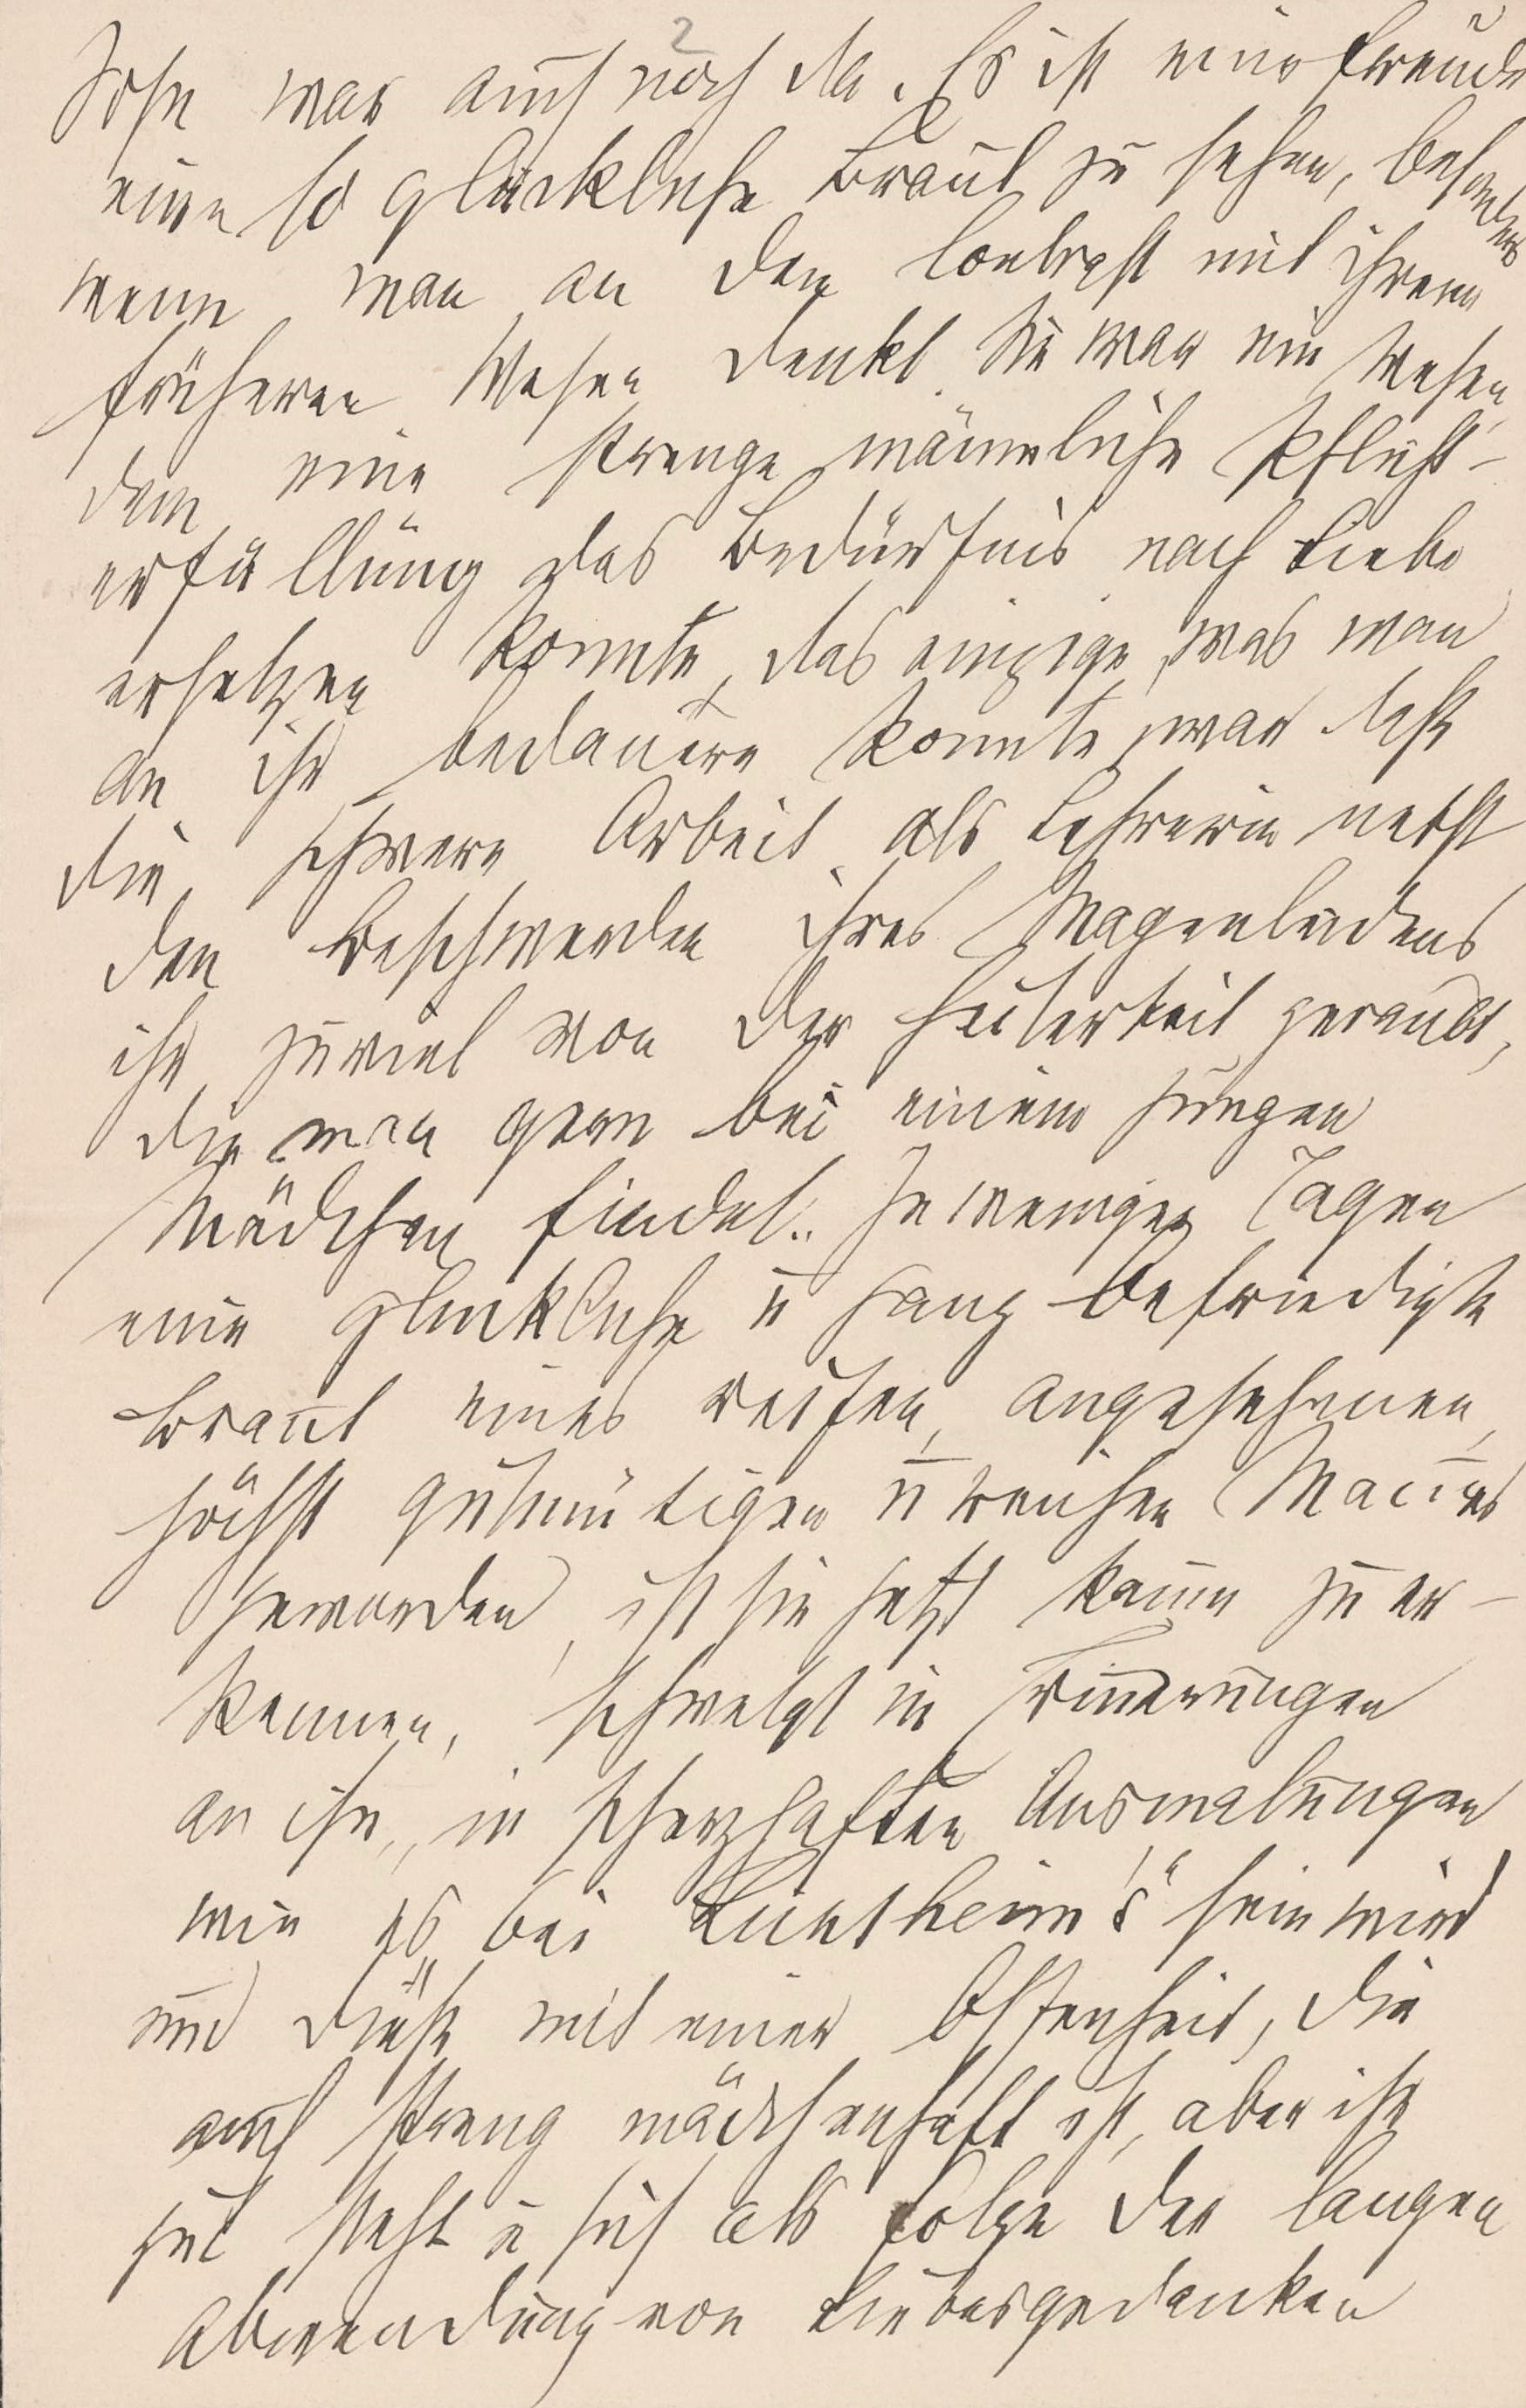 2
Sohn war auch noch da. Es ist eine Freude
eine so glückliche Braut zu sehen, besonders
wenn man an den Contrast mit ihrem
früheren Wesen denkt. Sie war ein Wesen,
dem eine strenge männliche Pflicht-
erfüllung das Bedürfnis nach Liebe
ersetzen konnte, das einzige, was man
an ihr bedauern konnte, war daß
die schwere Arbeit als Lehrerin nebst
den Beschwerden ihres Magenleidens
ihr zuviel von der Heiterkeit geraubt,
die man gern bei einem jungen
Mädchen findet. In wenigen Tagen
eine glückliche u ganz befriedigte
Braut eines reifen, angesehenen,
höchst gutmütigen u reichen Mannes
geworden, ist sie jetzt kaum zu er-
kennen, schwelgt in Erinnerungen
an ihn, in scherzhaften Ausmalungen
wie es bei sein wird
und dieß mit einer Offenheit, die
auch streng mädchenhaft ist, aber ihr
gut steht u sich als Folge der langen
Abwendung von Liebesgedanken